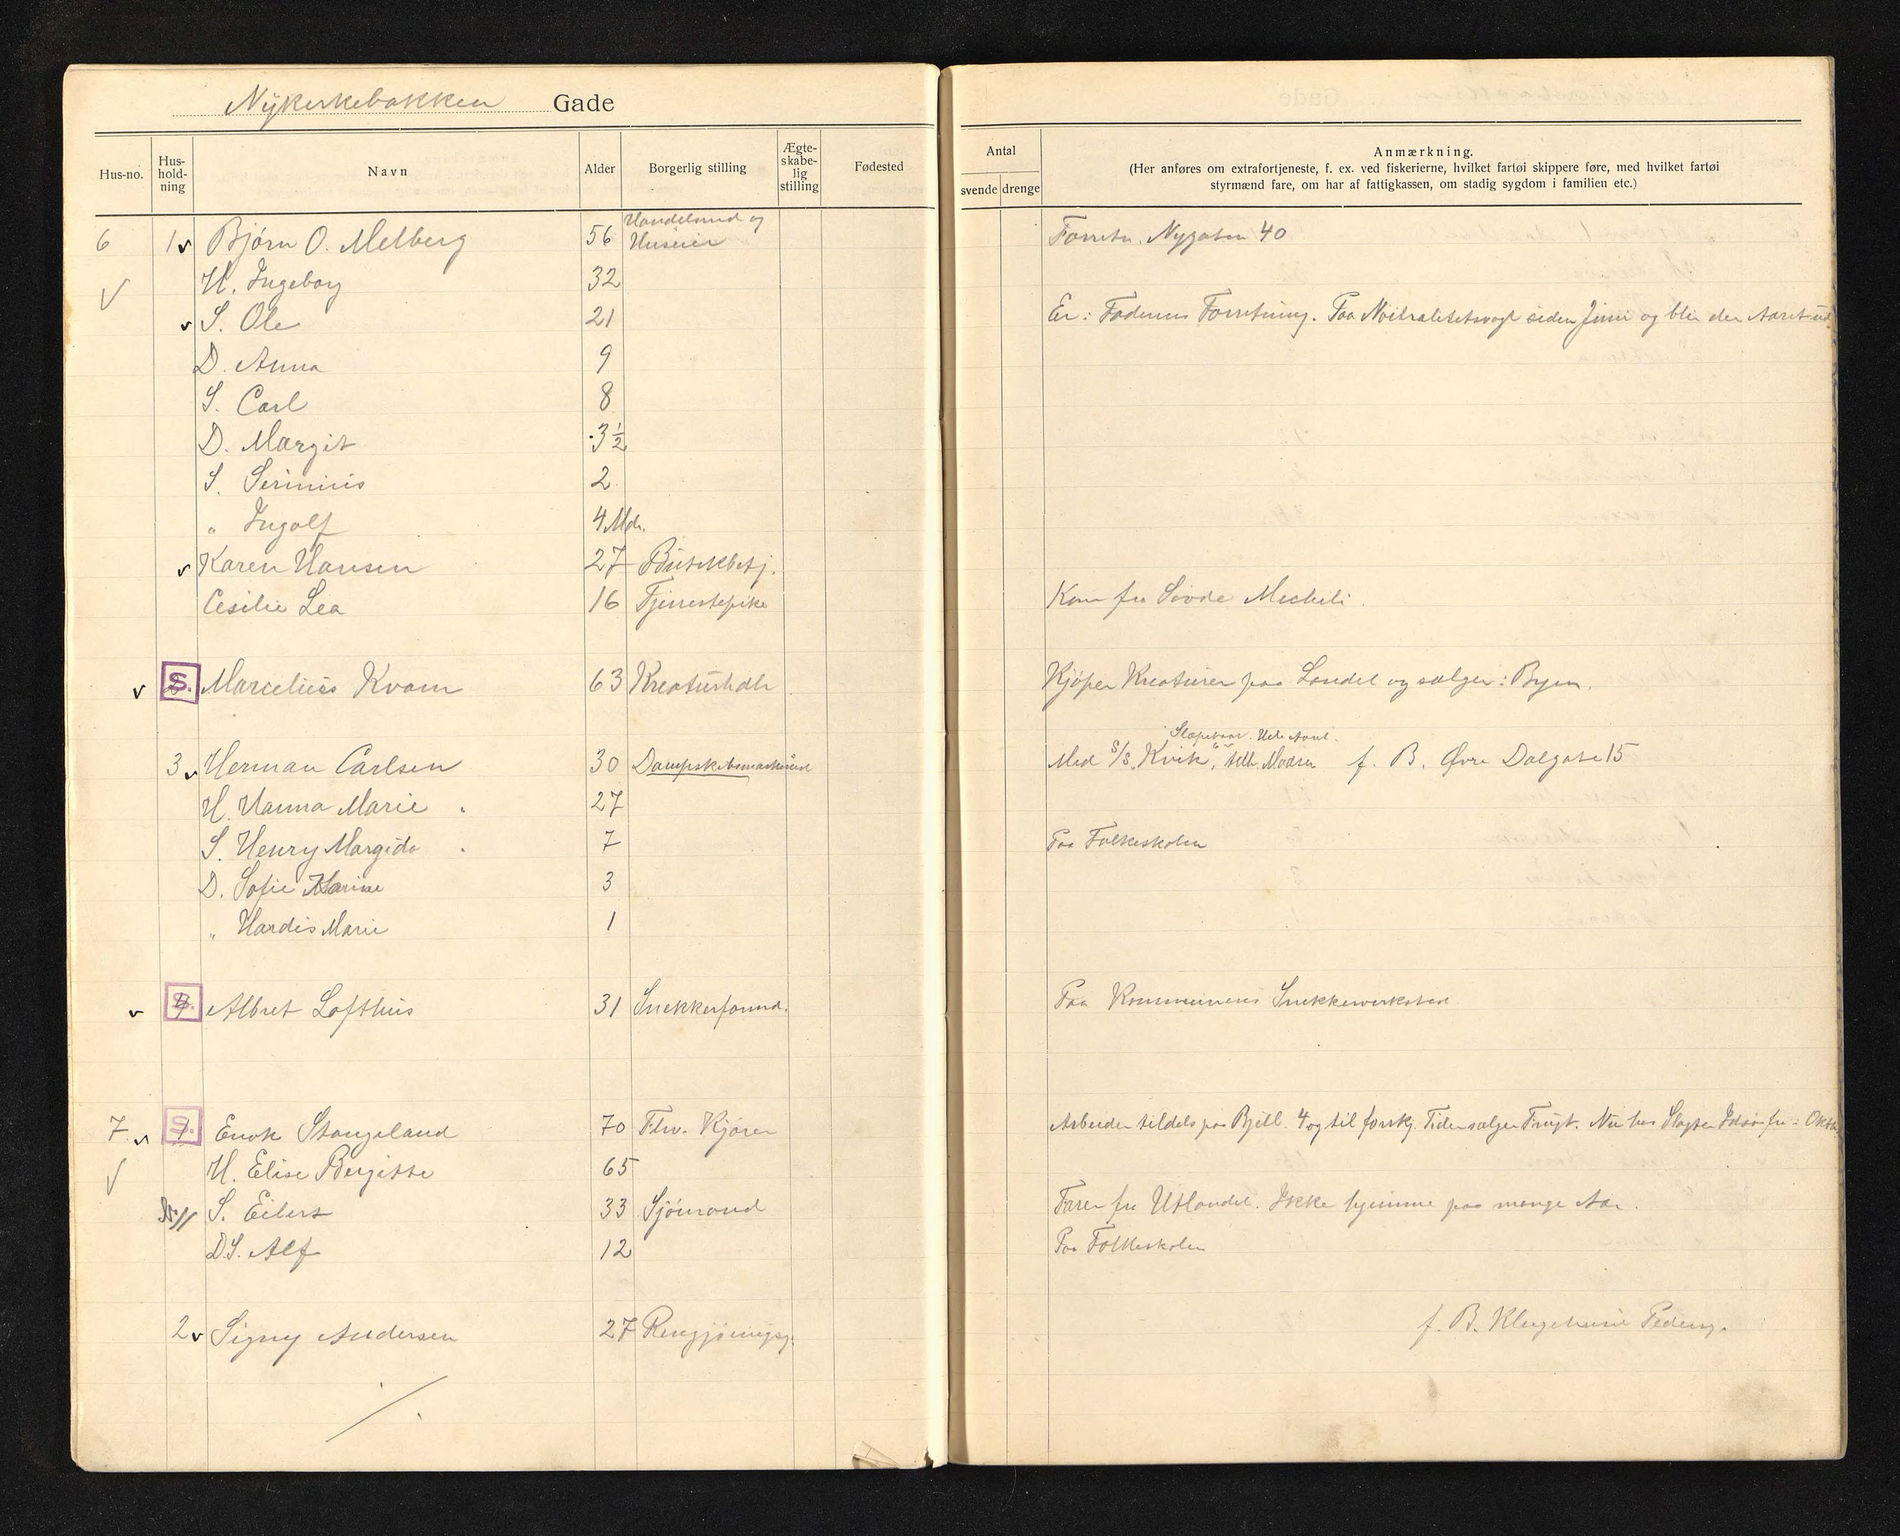 Nykirkebakken Gade
Hus-no. Hus-hold-ning Navn Alder Borgerlig stilling Ægte-skabe-lig stilling Fødested
Antal
svende drenge
Anmærkning.
(Her anføres om extrafortjeneste, f. ex. ved fiskerierne, hvilket fartøi skippere føre, med hvilket fartøi
styrmænd fare, om har af fattigkassen, om stadig sygdom i familien etc.)
6 1 Bjørn O. Melberg 56 Handelsmd og Huseier Forretn. Nygaten 40
H. Ingeborg 32
S. Ole 21 Er i Faderens Forretning. Paa Nøitralitetsvagt siden Juni og blir der Aaret ud
D. Anna 9
S. Carl 8
D. Margit 3½
S. Serinius 2
" Ingolf 4 Mdr.
Karen Hansen 27 Butikbetj.
Cesilie Lea 16 Tjenestepike Kom fra Søvde
S. Marcelius Kvam 63 Kreaturhdlr Kjøper Kreaturer paa Landet og sælger i Byen.
3 Herman Carlsen 30 Dampskibsmaskinist Med S/S "Kvik", f. B. Øvre Dalgate 15
H. Hanna Marie 27
S. Henry Margido 7 Paa Folkeskolen
D. Sofie Marine 3
" Hardis Marie 1
S. Albret Lofthus 31 Snekkerformd. Paa Kommunens Snekkerverksted
7 S. Enok Stangeland 70 Flv. Kjører Arbeider tildels paa 4 og til forskj. Tider sælger Frugt. Nu hos Slagter
H. Elise Bergitte 65
S. Eilert 33 Sjømand Farer fra Utlandet. Ikke hjemme paa mange Aar.
D.S. Alf 12 Paa Folkeskolen
2 Signy Andersen 27 Rengjøringsg. f. B.